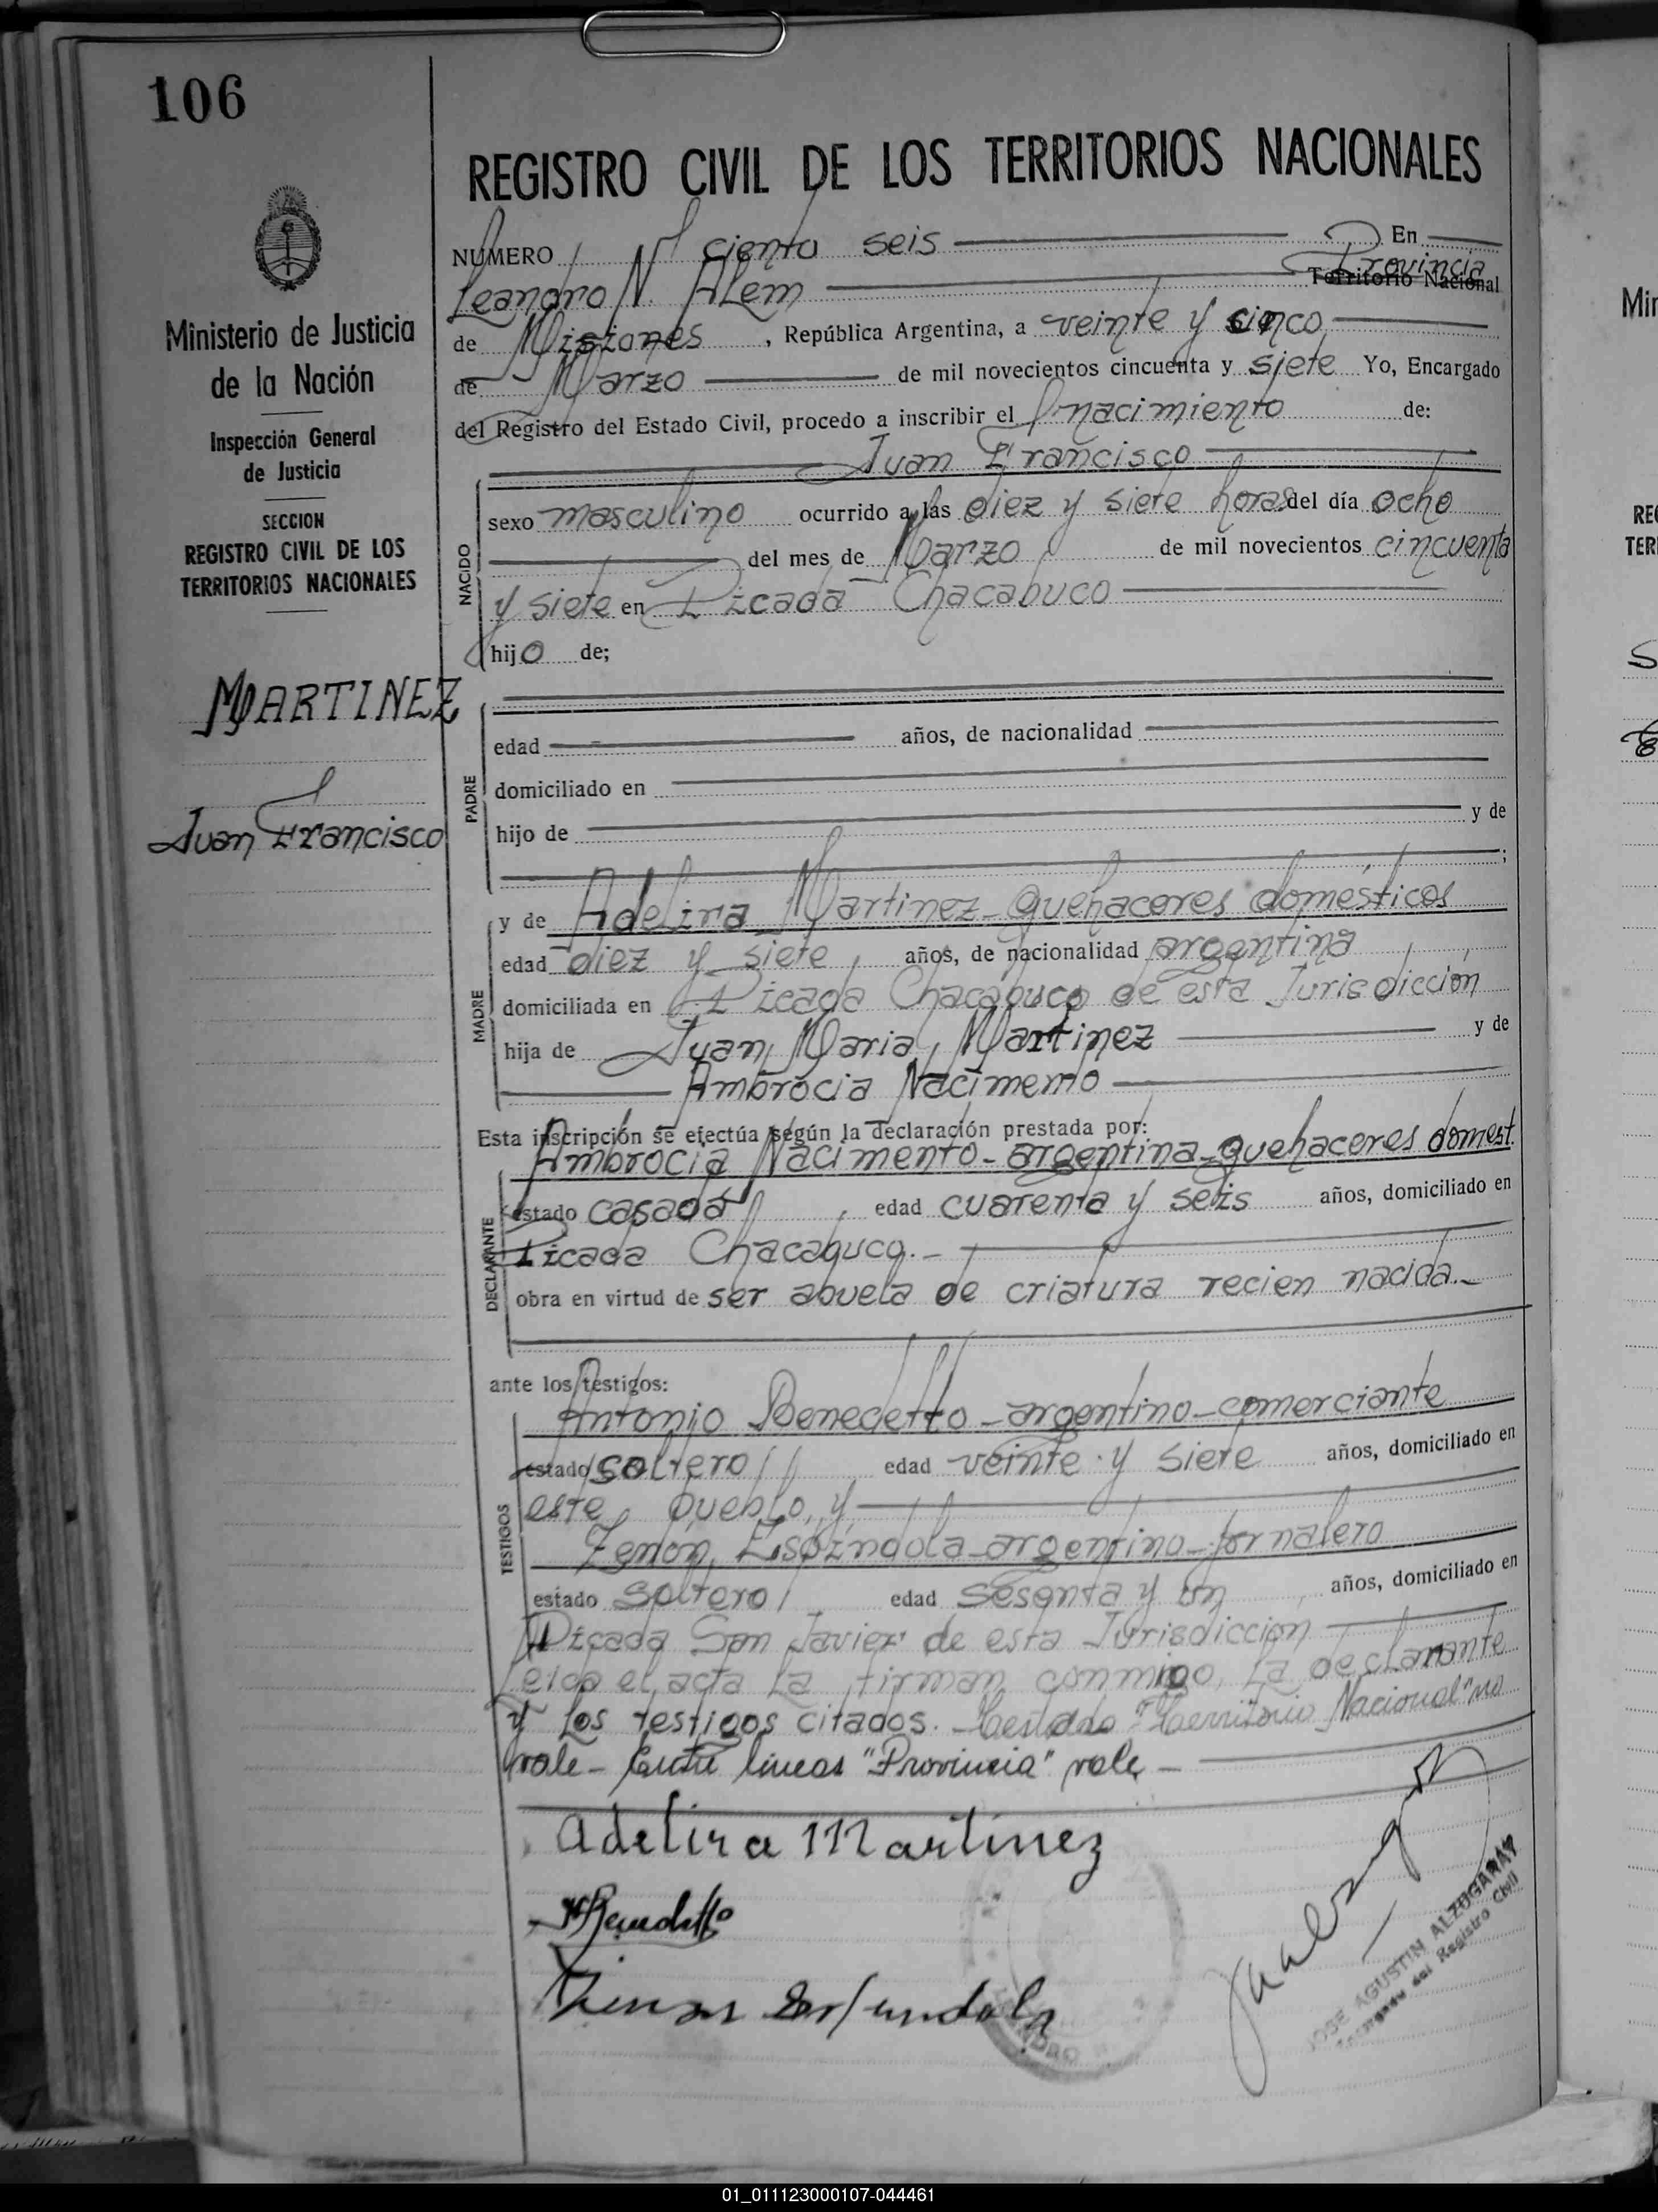 106
REGISTRO CIVIL DE LOS TERRITORIOS NACIONALES
NUMERO ciento seis En
Leandro N. Alem Provincia
Territorio Nacional
de Misiones, República Argentina, a veinte y cinco
de Marzo de mil novecientos cincuenta y siete Yo, Encargado
del Registro del Estado Civil, procedo a inscribir el nacimiento de:
Juan Francisco
NACIDO
sexo masculino ocurrido a las diez y siete horas del día ocho
del mes de Marzo de mil novecientos cincuenta
y siete en Picada Chacabuco
hijo de;
PADRE
edad años, de nacionalidad
domiciliado en
hijo de y de
;
MADRE
y de Adelira Martinez - quehaceres domésticos
edad diez y siete, años, de nacionalidad argentina
domiciliada en Picada Chacabuco de esta Jurisdicción
hija de Juan Maria Martinez y de
Ambrocia Nacimento
Esta inscripción se efectúa según la declaración prestada por:
DECLARANTE
Ambrocia Nacimento - argentina - quehaceres domest.
estado casada, edad cuarenta y seis años, domiciliado en
Picada Chacabuco.-
obra en virtud de ser abuela de criatura recien nacida.-
ante los testigos:
TESTIGOS
Antonio Benedetto - argentino - comerciante
estado soltero edad veinte y siete años, domiciliado en
este pueblo, y
Zenón Espíndola - argentino - jornalero
estado soltero edad sesenta y un años, domiciliado en
Picada San Javier de esta Jurisdicción
Leida el acta la firman conmigo, la declarante
y los testigos citados. Testado "Territorio Nacional" no
vale - Entre lineas "Provincia" vale -
Adelira Martinez
Benedetto
JOSE AGUSTIN ALZUGARAY
Encargado del Registro Civil
Ministerio de Justicia
de la Nación
Inspección General
de Justicia
SECCION
REGISTRO CIVIL DE LOS
TERRITORIOS NACIONALES
MARTINEZ
Juan Francisco
01_011123000107-044461